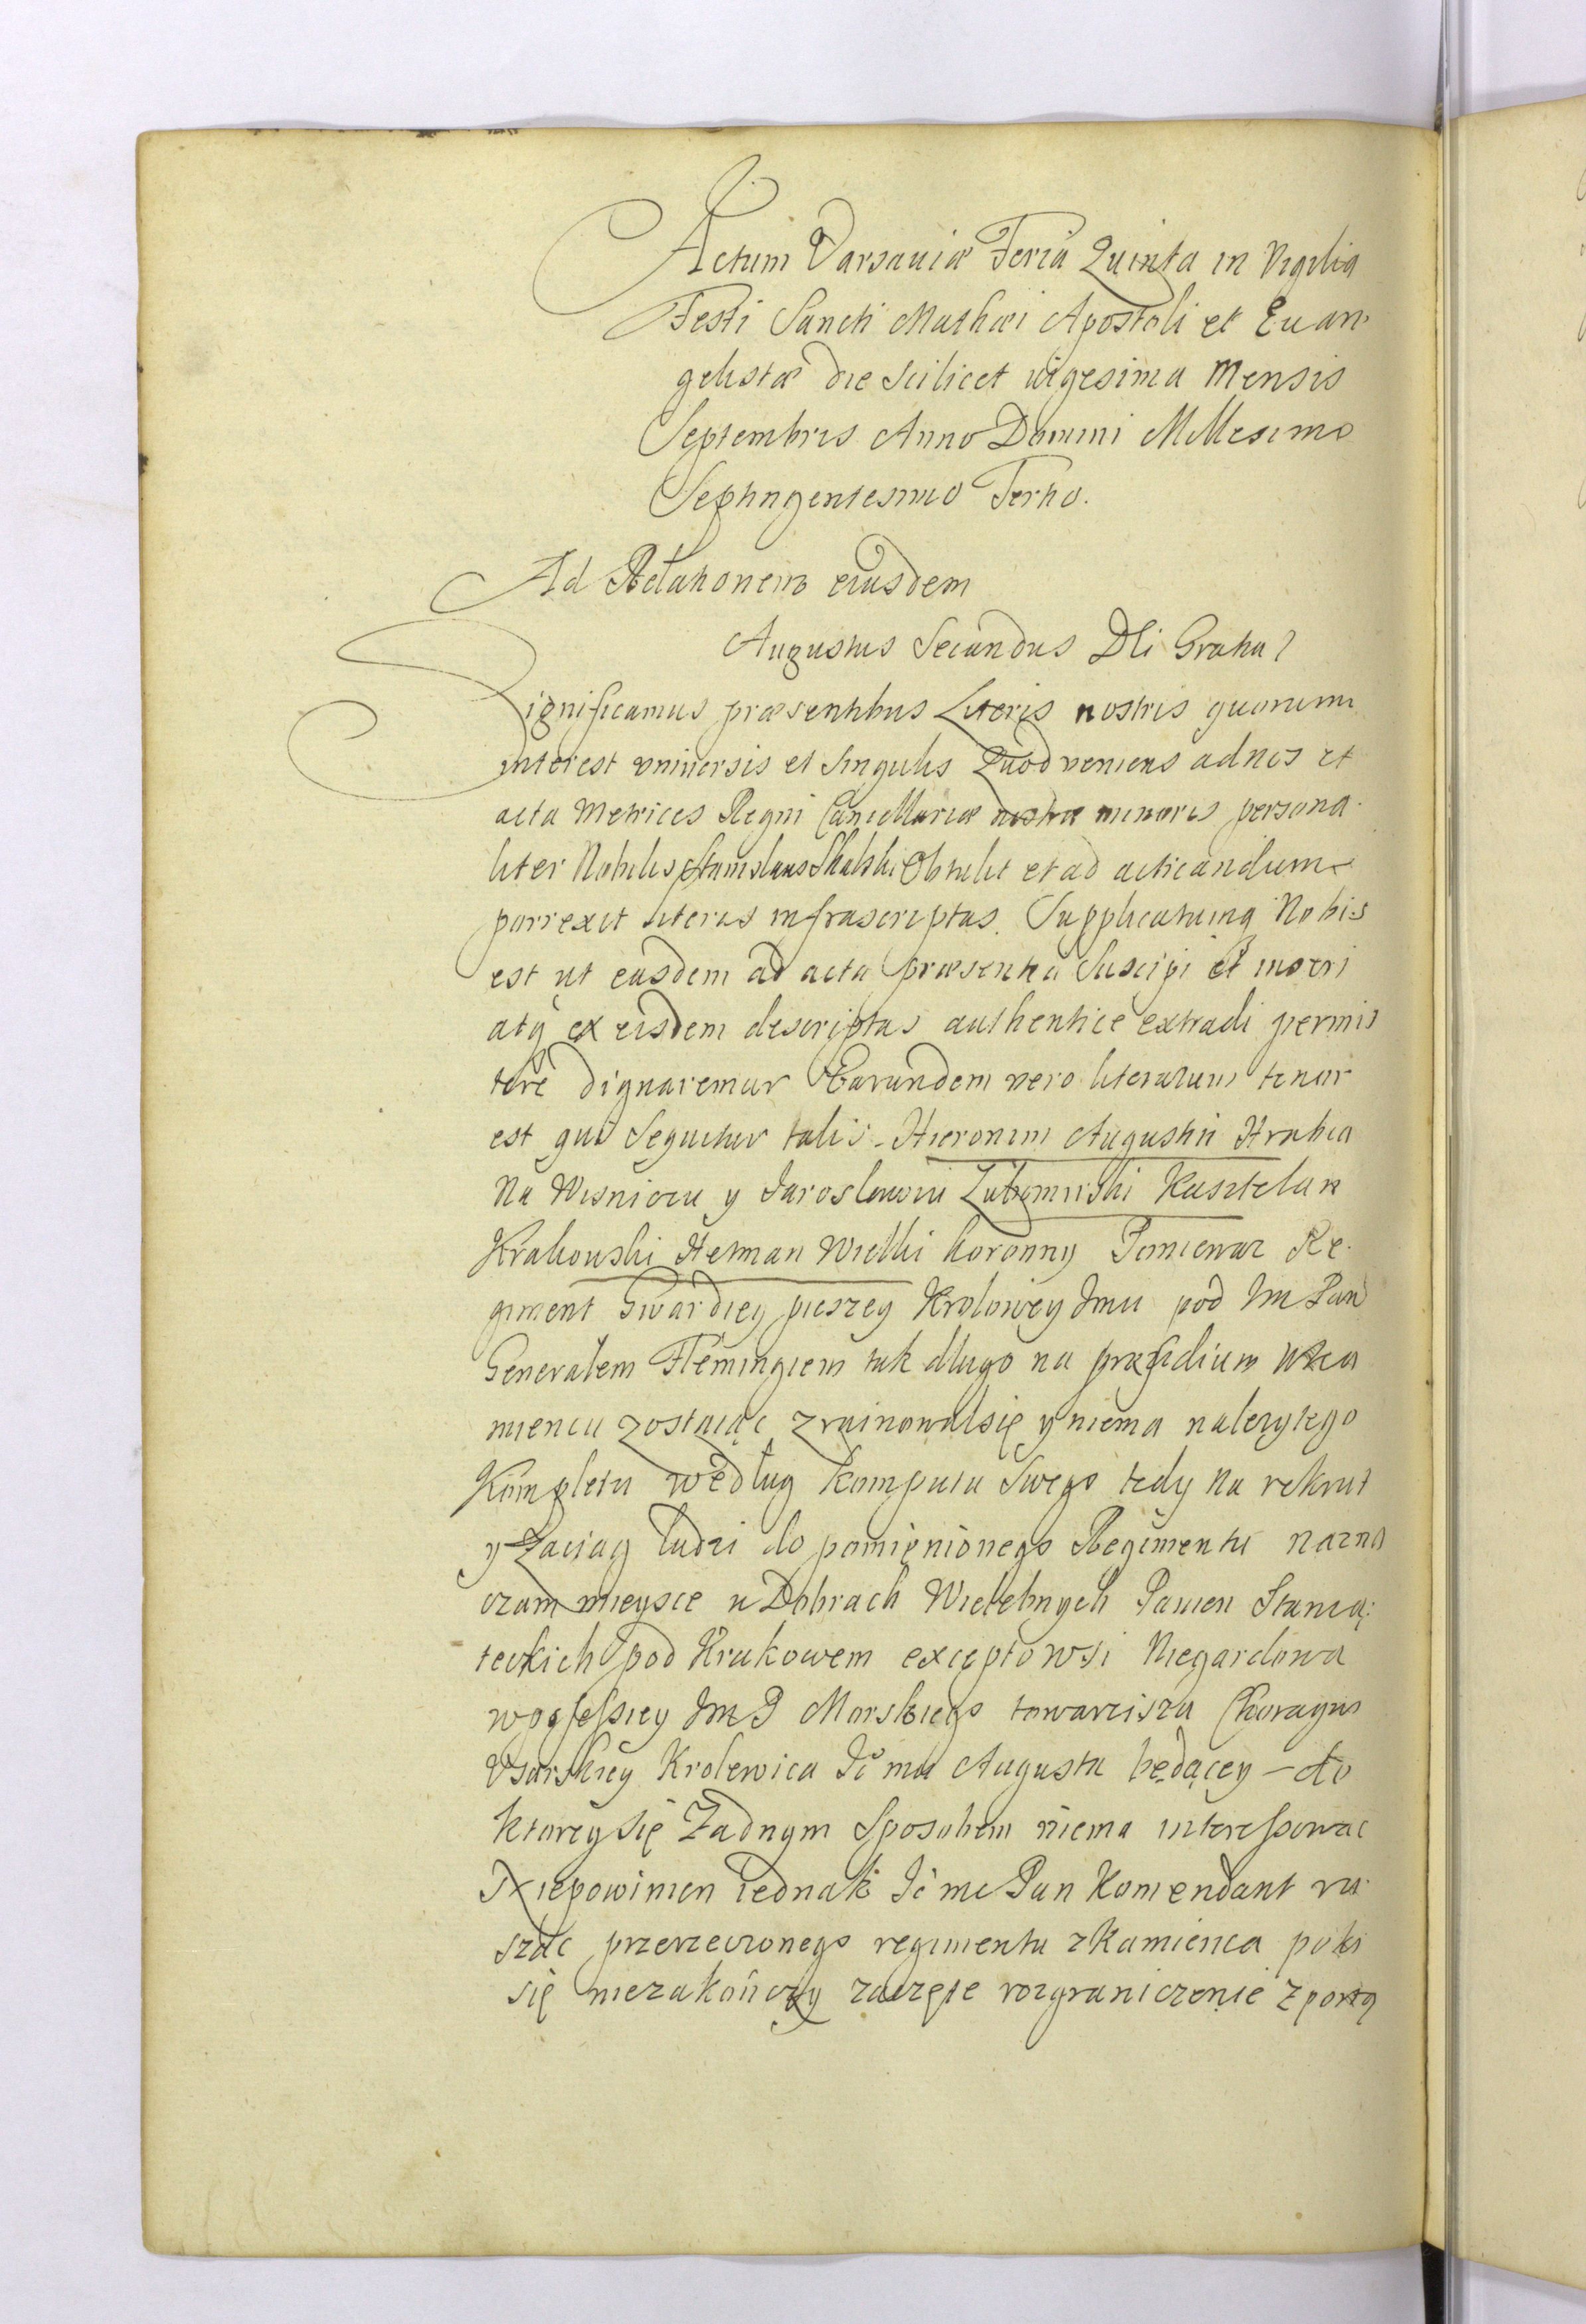 Actum Varsaviæ Feria Quinta in Vigilia
Festi Sancti Mathæi Apostoli et Euan
gelistæ die Scilicet vigesima Mensis
Septembris Anno Domini Millesimo
Septingentesimo Tertio.
Ad Relationem eiusdem
Augustus Secundus DEi Gratia
Significamus præsentibus Literis nostris quorum
interest vniuersis et Singulis Quod veniens ad nos et
acta Metrices Regni Cancellariæ nostræ minoris persona
liter Nobilis Stanislaus Skalski Obtulit et ad acticandum
porrexit literas infrascriptas. Supplicatumq Nobis
est ut easdem ad acta præsentia Suscipi et inseri
atq ex eisdem descriptas authentice extradi permit
tere dignaremur Earundem vero literarum tenor
est qui Sequitur talis. Hieronim Augustin Hrabia
Na Wisniczu y Jaroslawiu Lubomirski Kasztelan
Krakowski Hetman Wielki koronny Poniewaz Re
giment Gwardiey pieszey Krolowey Jmu pod Jm Pan
Generałem Flemingiem tak długo na præsidium w Ka
miencu zostaiąc zruinowalsię y niema nalezytego
Kompletu według komputu Swego tedy na rekrut
y Zaciag ludzi do pomięnionego Regimentu nazna
czam mieysce w Dobrach Wielebnych Panien Stanią
teckich pod Krakowem excepto wsi Niegardowa
w possessiey Jm P Morskiego towarzisza Choragwi
Vsarskiey Krolewica Jc mu Augusta będącey – do
ktorey się Zadnym Sposobem niema interessowac
Niepowinien iednak Jc mc Pan Komendant ru
szac przerzeczonego regimentu z Kamienca poki
się niezakończy zaczęte rozgraniczenie z portą